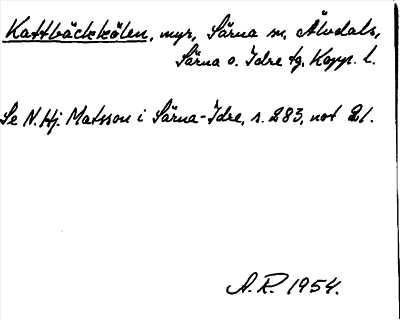 Kattbäckkölen, myr, Särna sn, Älvdals,
Särna o. Idre tg, Kopp. l.
Se N. Hj. Matsson i Särna-Idre, s. 283, not 21.
A. R. 1954.